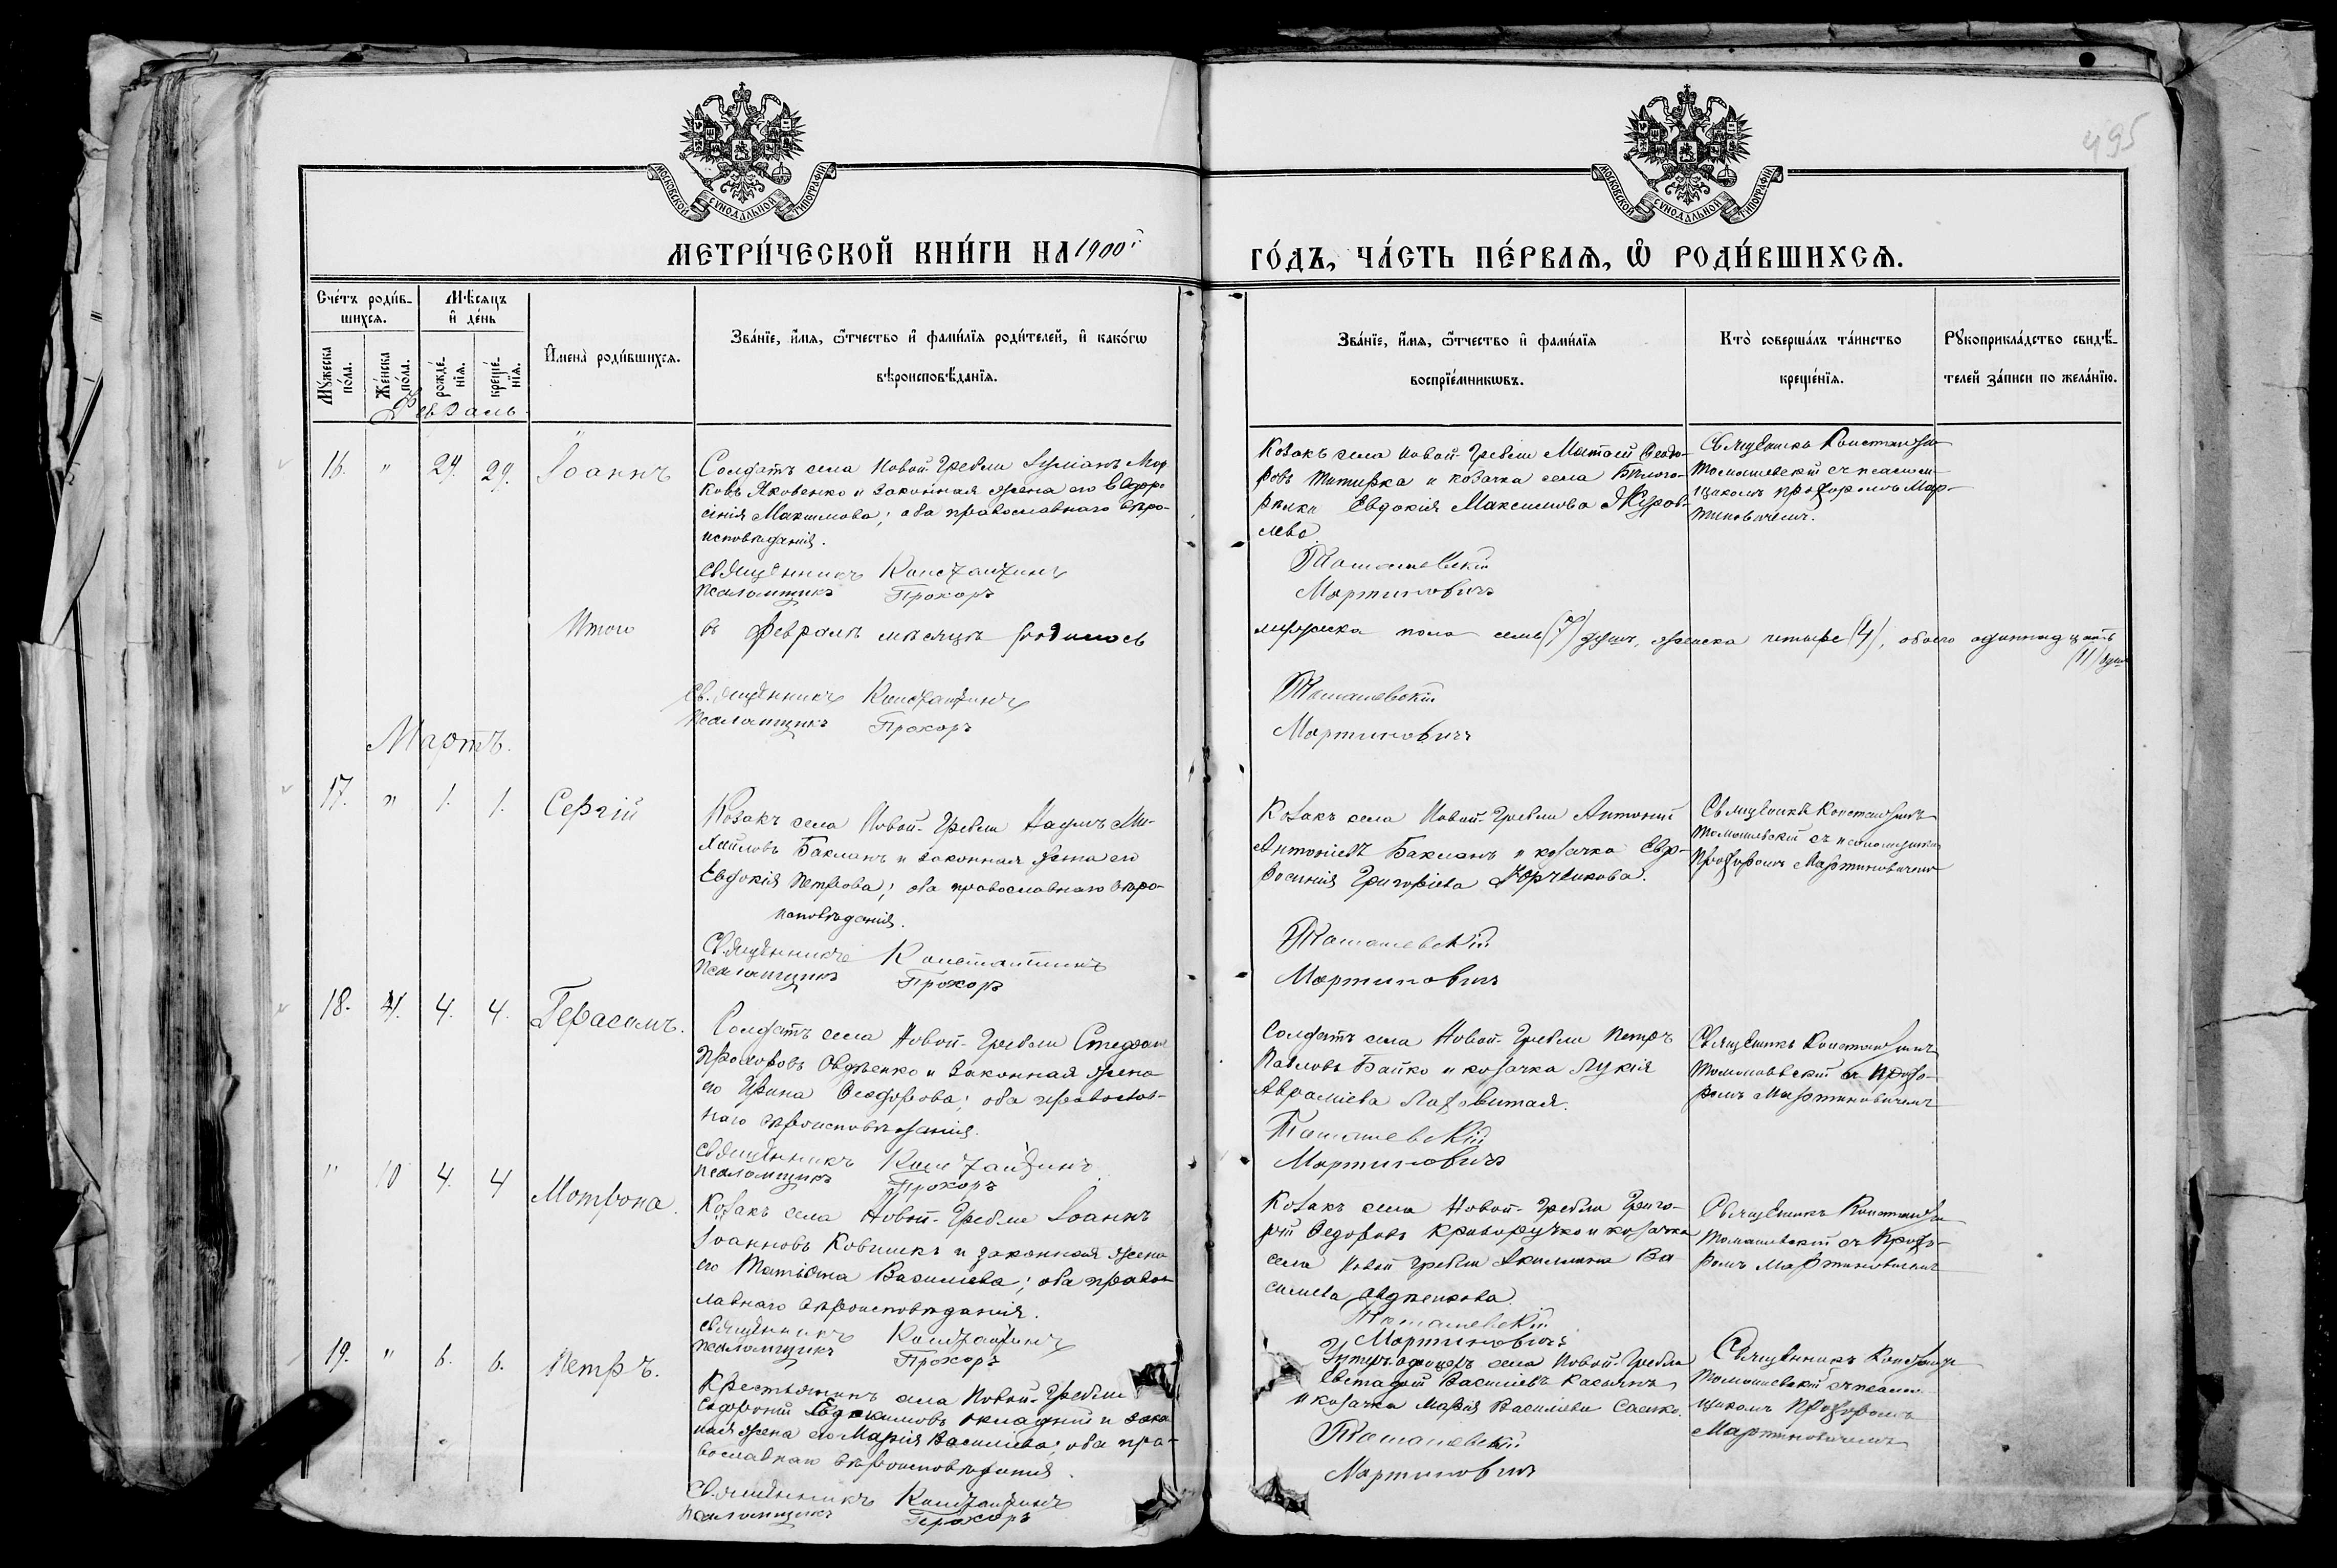 495
МОСКОВСКОЙ СѴНОДАЛЬНОЙ ТИПОГРАФІИ
МОСКОВСКОЙ СѴНОДАЛЬНОЙ ТИПОГРАФІИ
МЕТРИ́ЧЕСКОЙ КНИ́ГИ НА 1900й
ГО́ДЪ, ЧА́СТЬ ПЕ́РВАѦ, Ѡ҆ РОДИ́ВШИХСѦ.
Счетъ роди́в-
шихсѧ.
Мѣ́сѧцъ
и҆ де́нь
Мꙋ́жеска
по́ла.
Же́нска
по́ла.
рожде́-
нїѧ.
креще́-
нїѧ.
И҆мена̀ роди́вшихсѧ.
Зва́нїе, и҆́мѧ, ѻ҆́тчество и҆ фами́лїѧ роди́телей, и҆ како́гѡ
вѣроисповѣ́данїѧ.
Зва́нїе, и҆́мѧ, ѻ҆́тчество и҆ фами́лїѧ
воспрїе́мникѡвъ.
Кто̀ соверша́лъ та́инство
креще́нїѧ.
Рꙋкоприкла́дство свидѣ́-
телей за́писи по жела́нїю.
Февраль
16. " 29. 29. Іоаннъ
Солдатъ села Новой-Гребли
ковъ Яковенко и законная жена его
Максимова; оба православнаго вѣро-
исповѣданія.
Священникъ Константинъ
Псаломщикъ Прохоръ
Козакъ села Новой-Гребли Матѳей Ѳеодо-
ровъ Титирка и козачка села
Евдокія Максимова Журав-
лева.
Томашевскій
Мартиновичъ
Священникъ Константинъ
Томашевскій съ псалом-
щикомъ Прохоромъ Мар-
тиновичемъ.
Итого въ Февралѣ мѣсяцѣ родилось
мужеска пола семь (7) душъ, женска четыре (4), обоего одиннадцать
(11) душъ
Священникъ Константинъ
Псаломщикъ Прохоръ
Томашевскій
Мартиновичъ
Мартъ.
17. " 1. 1. Сергій
Козакъ села Новой-Гребли Наумъ Ми-
хайловъ Бакланъ и законная жена его
Евдокія Петрова; оба православнаго вѣро-
исповѣданія.
Священникъ Константинъ
Псаломщикъ Прохоръ
Козакъ села Новой-Гребли Антоній
Антоніевъ Бакланъ и козачка Евф-
росинія Григоріева
Томашевскій
Мартиновичъ
Священникъ Константинъ
Томашевскій съ псаломщикомъ
Прохоромъ Мартиновичемъ
18. 4. 4. Герасимъ.
Солдатъ села Новой-Гребли Стефанъ
Прохоровъ Овдѣенко и законная жена
его Ирина Ѳеодорова; оба православ-
наго вѣроисповѣданія.
Священникъ Константинъ
Псаломщикъ Прохоръ
Солдатъ села Новой-Гребли Петръ
Павловъ Байко и козачка Лукія
Авраміева
Томашевскій
Мартиновичъ
Священникъ Константинъ
Томашевскій съ Прохо-
ромъ Мартиновичемъ
" 10 4. 4 Мотрона.
Козакъ села Новой-Гребли Іоаннъ
Іоанновъ и законная жена
его Татьяна Василіева; оба право-
славнаго вѣроисповѣданія.
Священникъ Константинъ
Псаломщикъ Прохоръ
Козакъ села Новой-Гребли Григо-
рій Ѳедоровъ Криворучко и козачка
села Новой Гребли Акилина Ва
силіева Авдѣенкова.
Томашевскій
Мартиновичъ
Священникъ Константинъ
Томашевскій съ Прохо-
ромъ Мартиновичемъ
19. " 6. 6. Петръ.
Крестьянинъ села Новой-Гребли
Софроній Евдокимовъ и закон
ная жена его Марія Василіева; оба пра-
вославнаго вѣроисповѣданія.
Священникъ Константинъ
Псаломщикъ Прохоръ
Унтеръ-офицеръ села Новой-Гребли
Василіевъ
и козачка Марія Василіева
Томашевскій
Мартиновичъ
Священникъ Константинъ
Томашевскій съ псалом-
щикомъ Прохоромъ
Мартиновичемъ